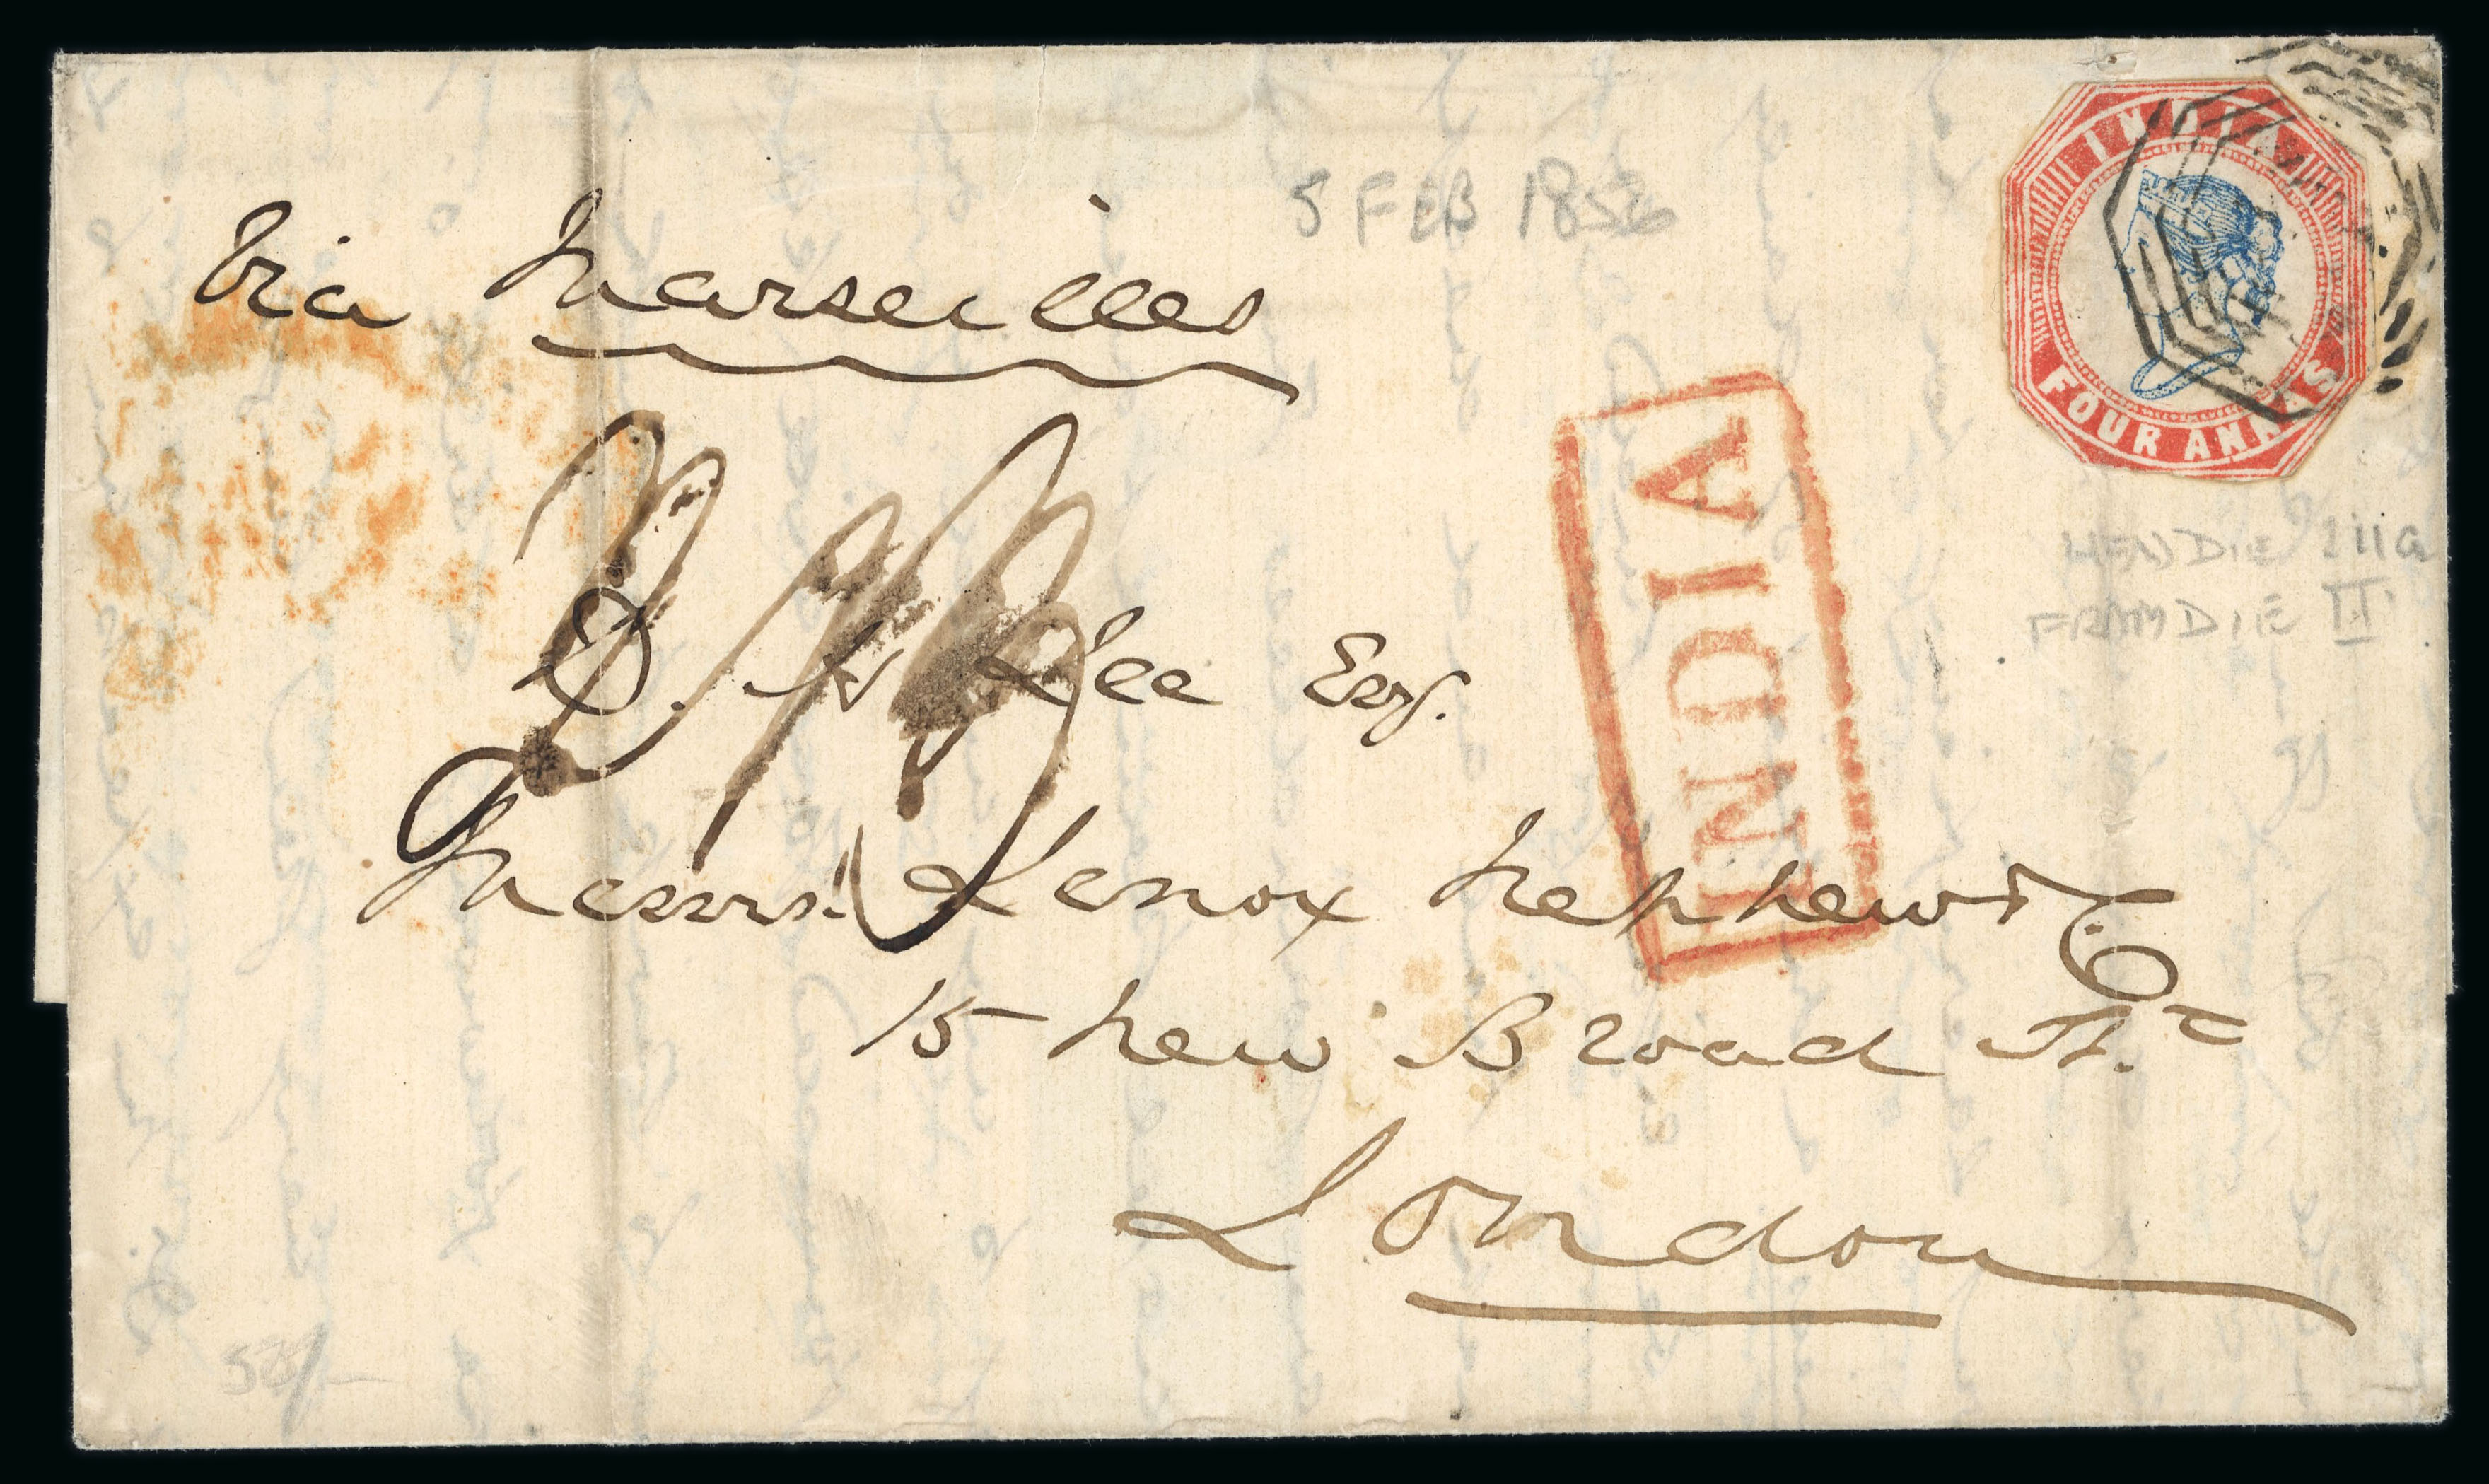 INDIA
FOUR ANNAS
5 FEB 1856
Via Marseilles
INDIA
HEAD DIE IIIa
FRAM DIE II
Lee Esq.
Messrs. Lenox Nephews & Co
15 New Broad St.
London